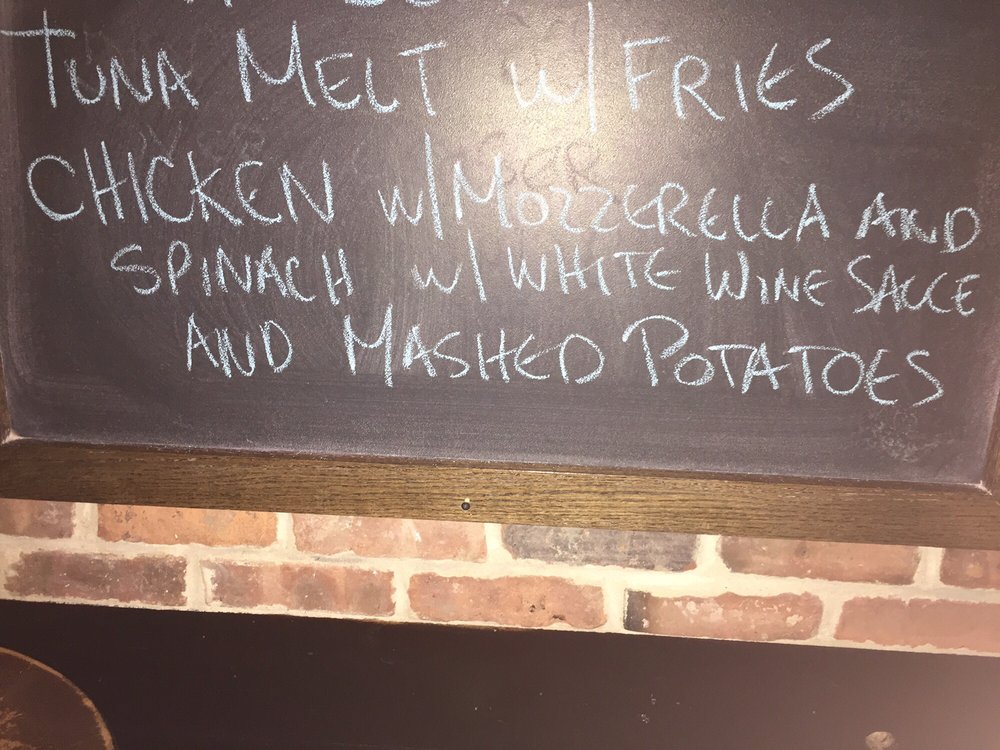 TUNA MELT W/ FRIES
CHICKEN W/ MOZZERELLA AND
SPINACH W/ WHITE WINE SAUCE
AND MASHED POTATOES